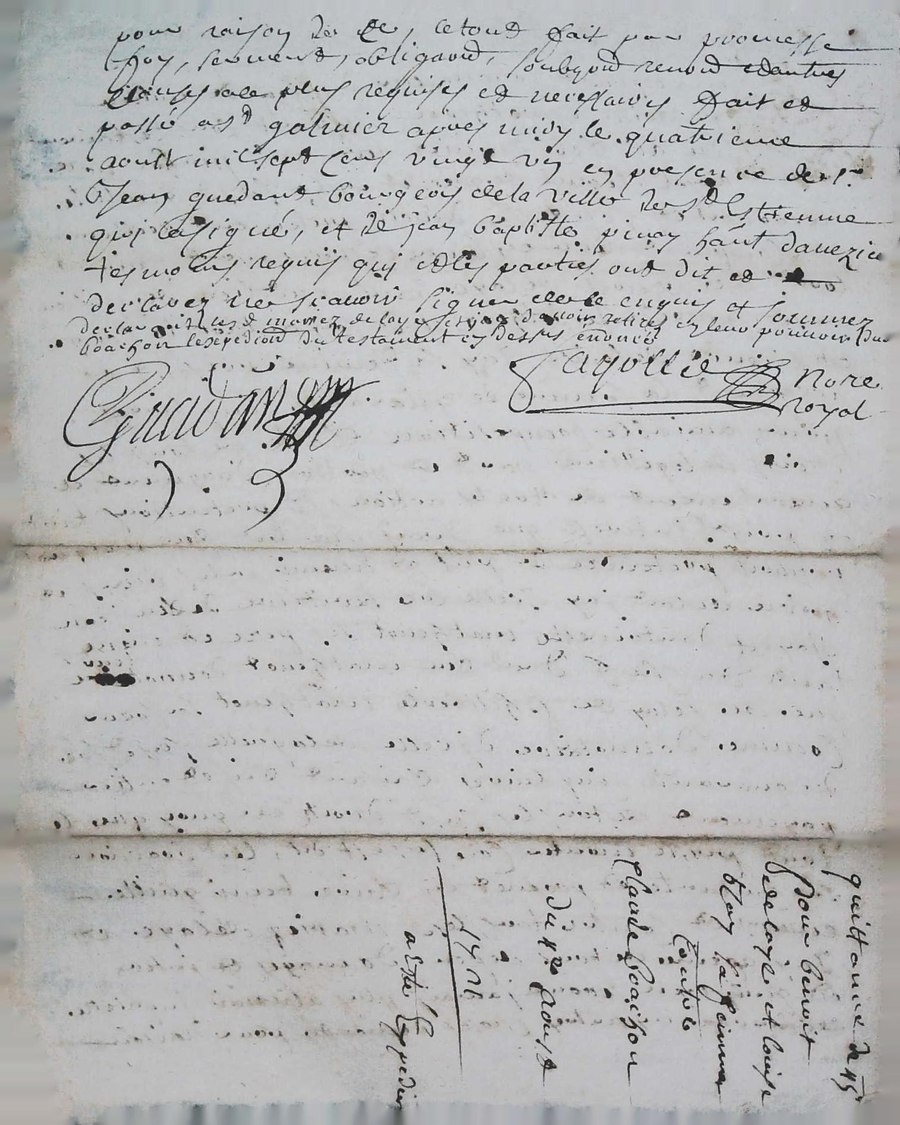 pour raison de ce, le tout fait par promesse
foy, serment, obligaõn, soubzõn renõn et autres
clauses a ce plus requises et necessaires fait et
passé a St galmier apres midy le quatrieme
aoust mil sept cens vingt un en presence de sr
Jean guedant bourgeois de la ville de St Estienne
qui a signé, et de jean baptiste pinay
tesmoins requis qui et les parties ont dit et
declarez ne scavoir signer de ce enquis et sommez
declarant les d mariez delaye avoir retirez en leur pouvoir du
boachon l'expediõn du testament cy dessus enoncé
nore
royal
quittance de 45
Pour benoit
delaye et louise
blay sa femme
Contre
Claude boachon
du 4e aoust
1721
a esté Expedié